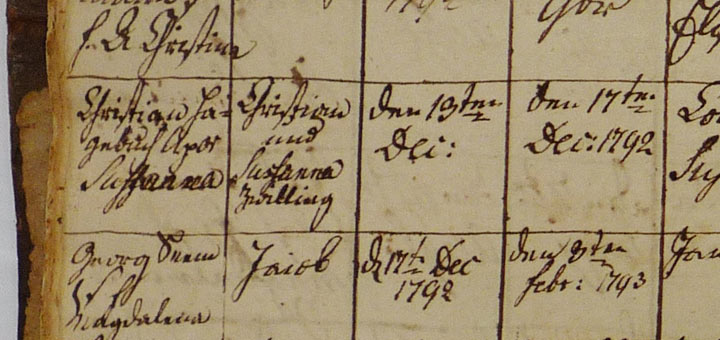 f. E. Christina
Christian Ha-
gebuch Uxor
Sussanna
Christian
und
Sussanna
Zwilling
den 13ten
Dec:
den 17ten
Dec: 1792
Georg
Magdalena
Jacob
d 17t Dec
1792
den 3ten
febr: 1793